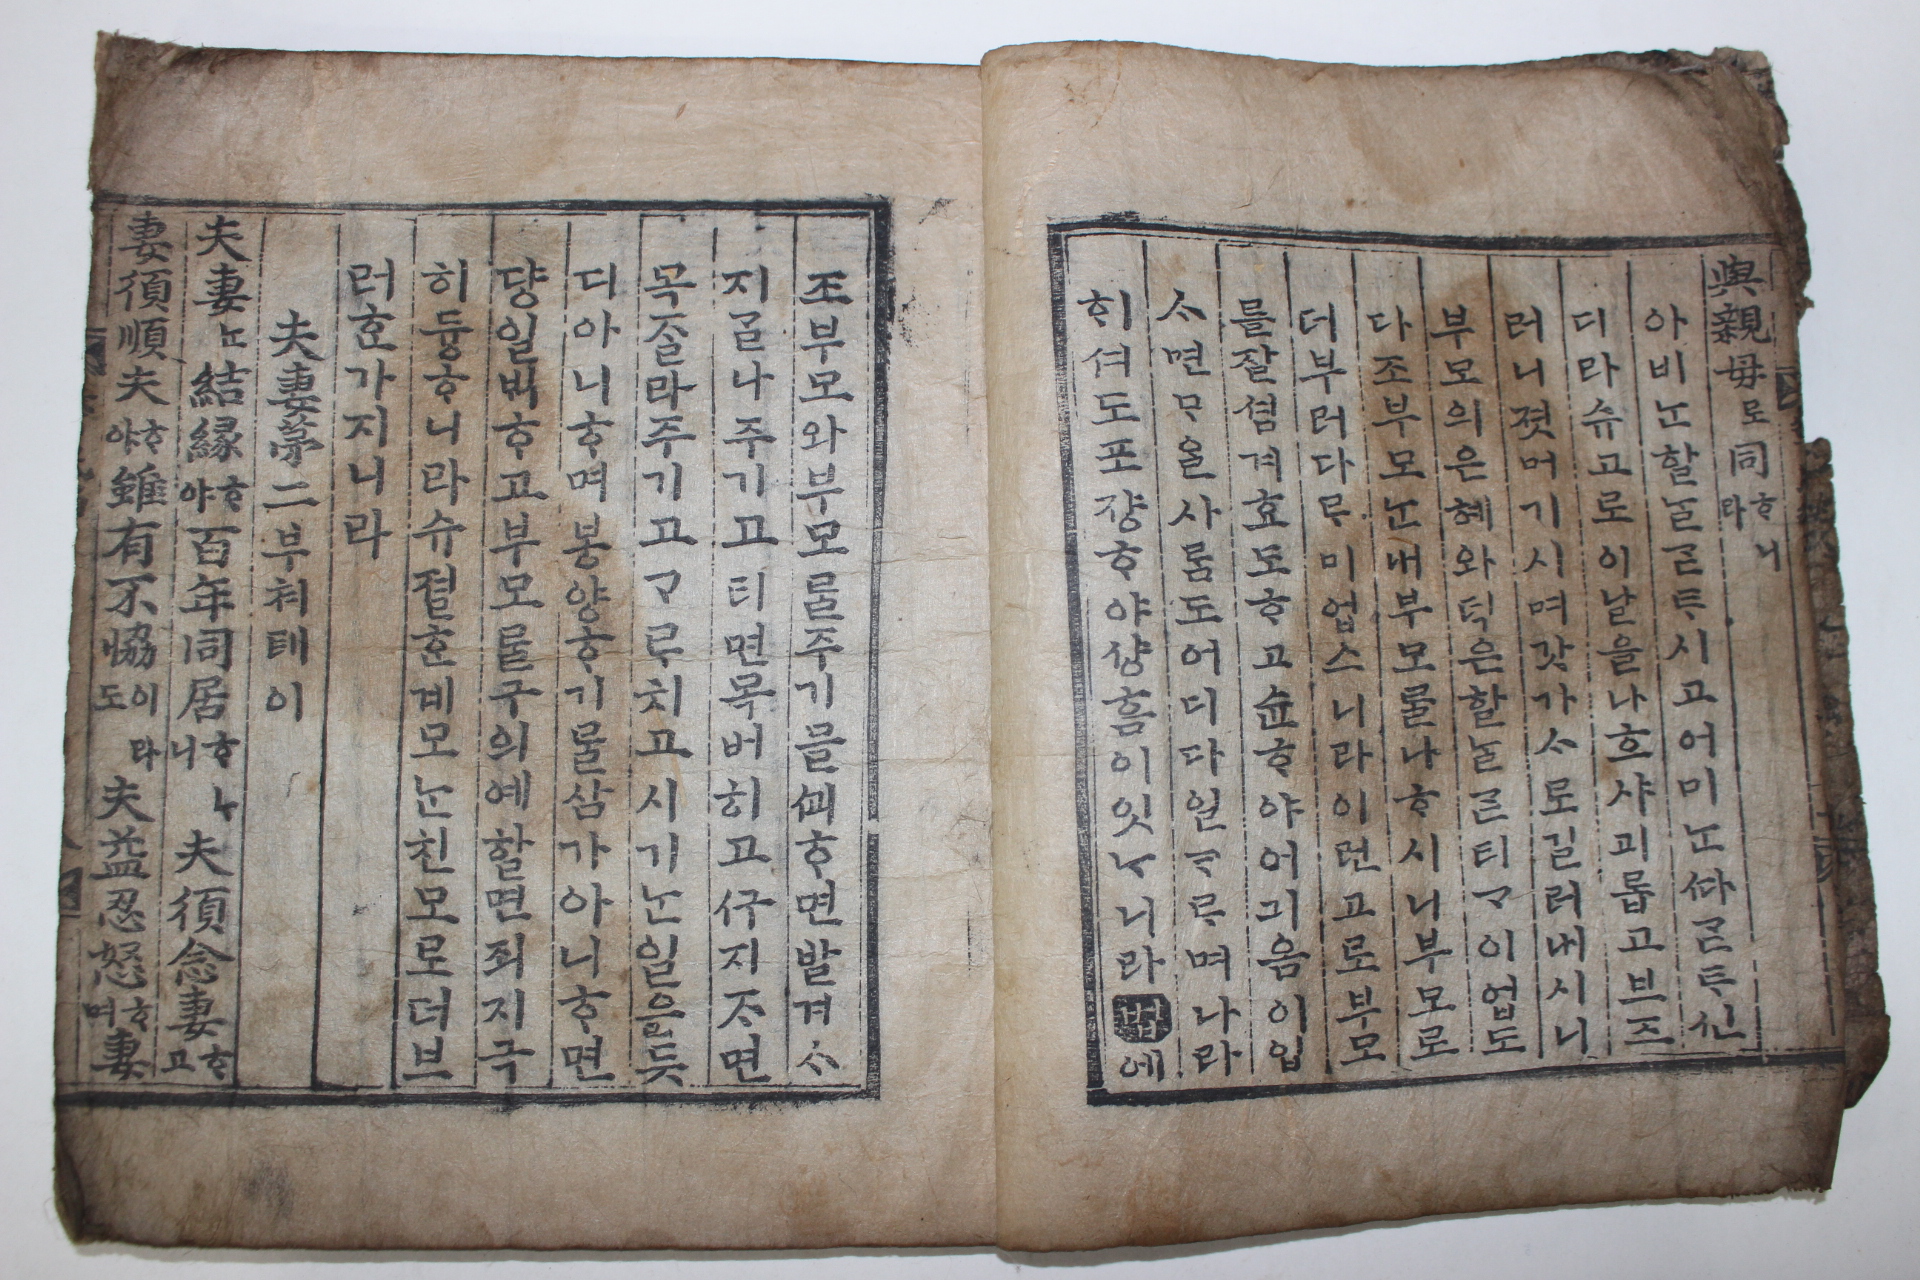 與親母로同ᄒᆞ니라
아비ᄂᆞᆫ할ᄂᆞᆯᄀᆞᄐᆞ시고어미ᄂᆞᆫᄯᅡᄀᆞᄐᆞ신
디라슈고로이날을나ᄒᆞ샤괴롭고브즈
러니졋머기시며갓가ᄉᆞ로길러내시니
부모의은혜와덕은할ᄂᆞᆯᄀᆞ티ᄀᆞ이업도
다조부모ᄂᆞᆫ내부모ᄅᆞᆯ나ᄒᆞ시니부모로
더부러다ᄅᆞ미업스니라이런고로부모
를잘셤겨효도ᄒᆞ고슌ᄒᆞ야어긔욤이입
ᄉᆞ면ᄆᆞᄋᆞᆯ사ᄅᆞᆷ도어디다일ᄏᆞᄅᆞ며나라
히셔도포쟝ᄒᆞ야샹흠이잇ᄂᆞ니라법에
조부모와부모ᄅᆞᆯ주기믈ᄭᅬᄒᆞ면발겨ᄉᆞ
지ᄀᆞᆯ나주기고티면목버히고ᄭᅮ지ᄌᆞ면
목ᄌᆞᆯ라주기고ᄀᆞᄅᆞ치고시기ᄂᆞᆫ일을듯
디아니ᄒᆞ며봉양ᄒᆞ기ᄅᆞᆯ삼가아니ᄒᆞ면
댱일ᄇᆡᆨᄒᆞ고부모ᄅᆞᆯ구의예할면죄지극
히듕ᄒᆞ니라슈졀ᄒᆞᆫ계모ᄂᆞᆫ친모로더브
러ᄒᆞᆫ가지니라
夫妻第二부쳐톄이
夫妻ᄂᆞᆫ結緣ᄒᆞ야百年同居ᄒᆞᄂᆞ니夫須念妻ᄒᆞ고
妻須順夫ᄒᆞ야雖有不恊이라도夫益忍怒ᄒᆞ며妻